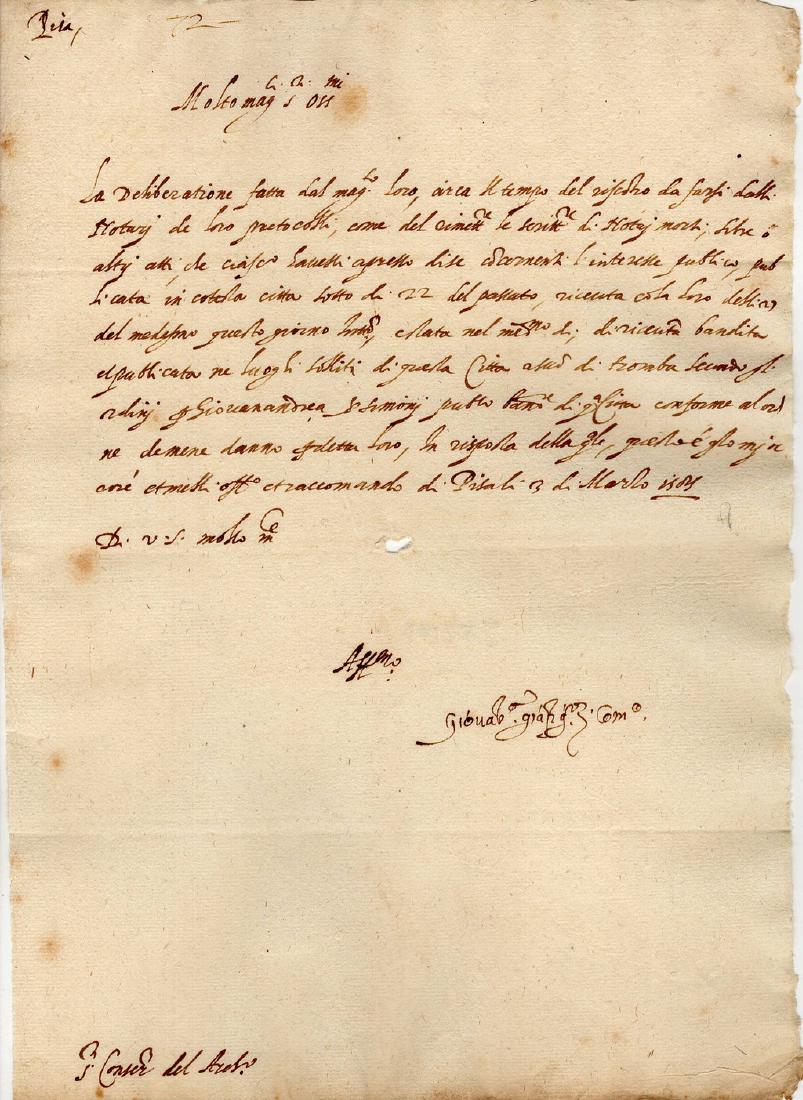 Pisa,
72
Molto mag.ci S.ri Oss.mi
La Deliberatione fatta dal mag.to loro, circa il tempo del riscõtro da farsi dalli
Notarj de loro protocolli, come del rimett.re le scritt.re di Notaj morti, libri ò
altrj atti, che ciasc.o havessi apresso di se cõcernenti l'interesse publico, pub
licata in cotesta citta sotto di 22 del passato, ricevuta cõ la loro delli
del medesmo questo giorno, è stata nel med.mo di, di ricevuta bandita
et publicata ne luoghi soliti di questa Citta a suõ di tromba secondo gl'
ordinj p Giovanandrea Simonj publ.o di conforme al ordi
ne che mene danno p detta loro, In risposta della q.le, questa è
et me li off.o et raccomando di Pisa li 3 di Marzo 1585
D. V. S. molto m.ce
Aff.mo
Com.o
S.ri Conser.ri del Arch.o